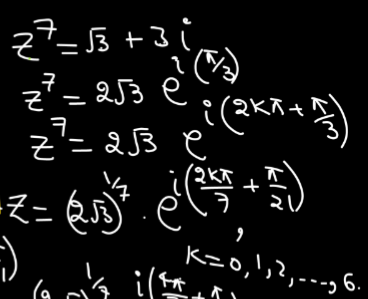 z⁷ = √3 + 3i
z⁷ = 2√3 e^{i(π/3)}
z⁷ = 2√3 e^{i(2kπ + π/3)}
z = (2√3)^{1/7} · e^{i(2kπ/7 + π/21)},
k = 0, 1, 2, ----, 6.